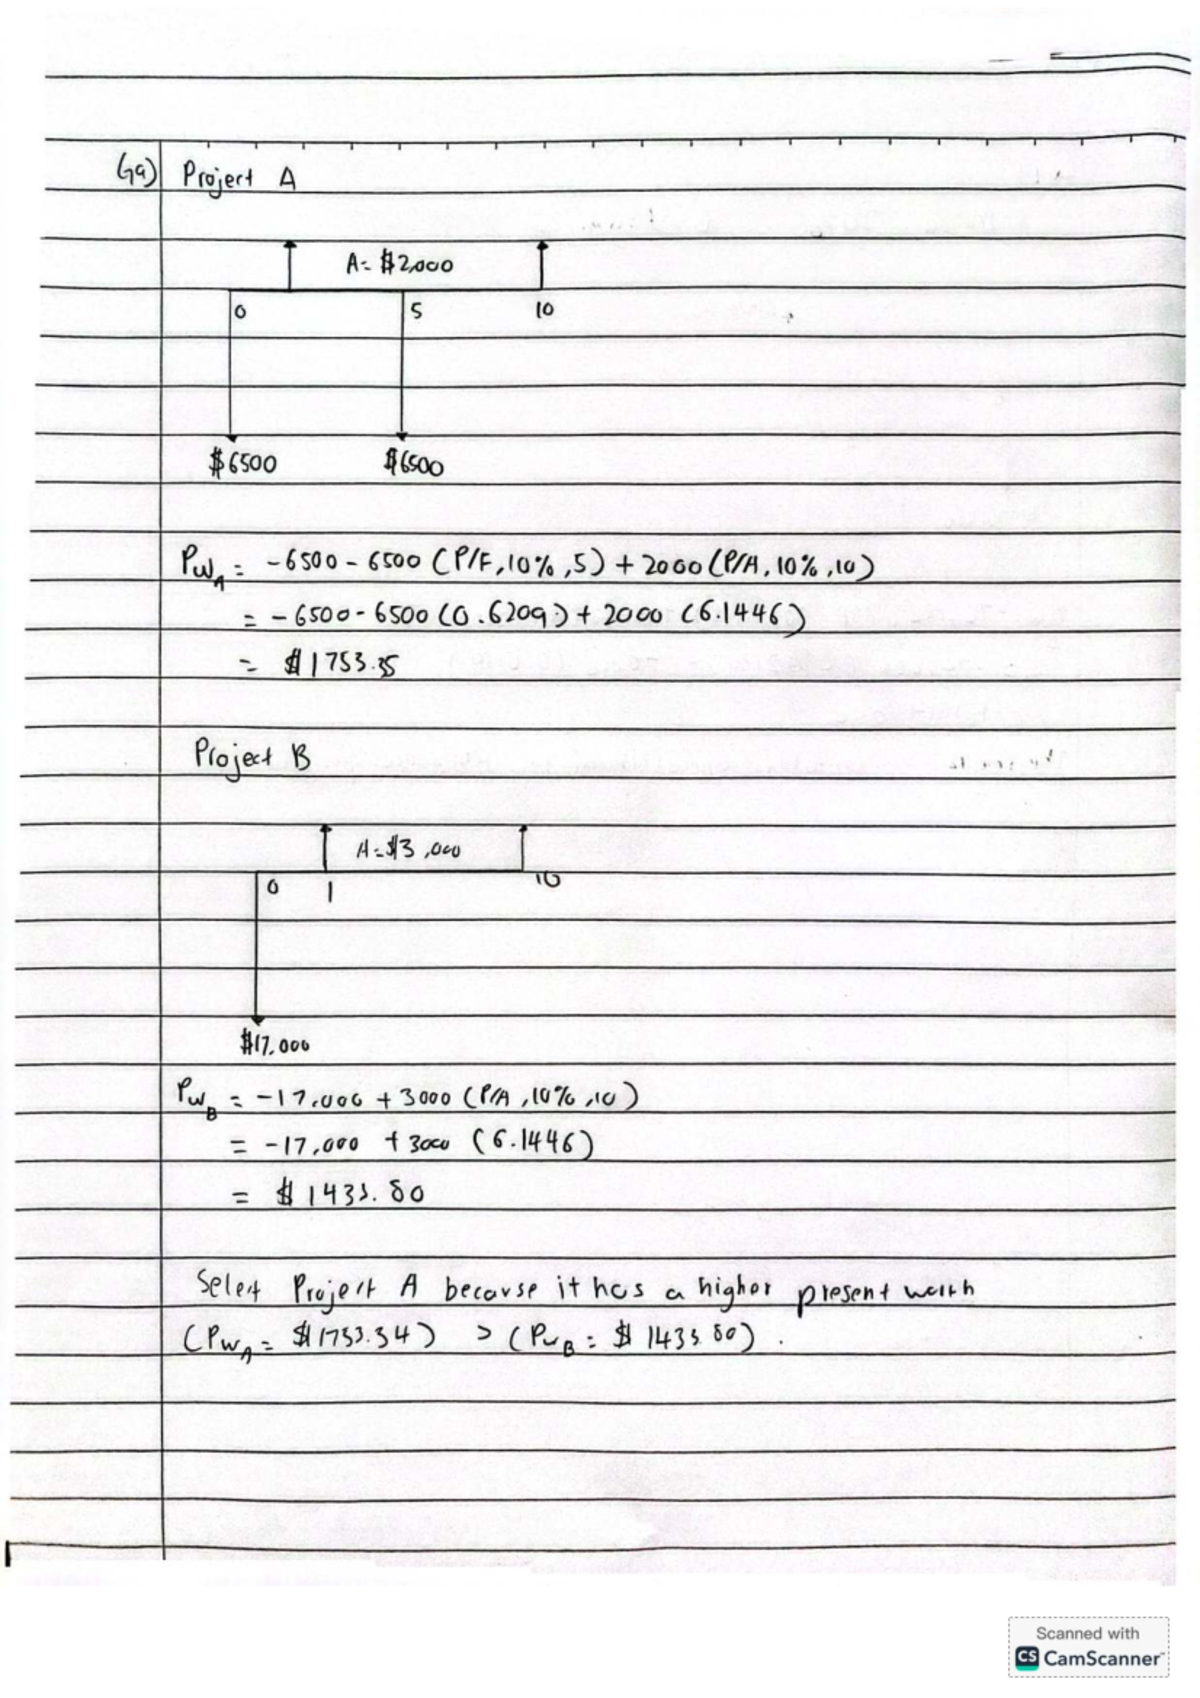 (a) Project A
A = $2,000
0 5 10
$6500 $6500
PW_A = -6500 - 6500 (P/F, 10%, 5) + 2000 (P/A, 10%, 10)
= -6500 - 6500 (0.6209) + 2000 (6.1446)
= $1753.35
Project B
A = $3,000
0 1 10
$17,000
PW_B = -17,000 + 3000 (P/A, 10%, 10)
= -17,000 + 3000 (6.1446)
= $1433.80
Select Project A because it has a higher present worth
(PW_A = $1753.34) > (PW_B = $1433.80).
Scanned with
CS CamScanner